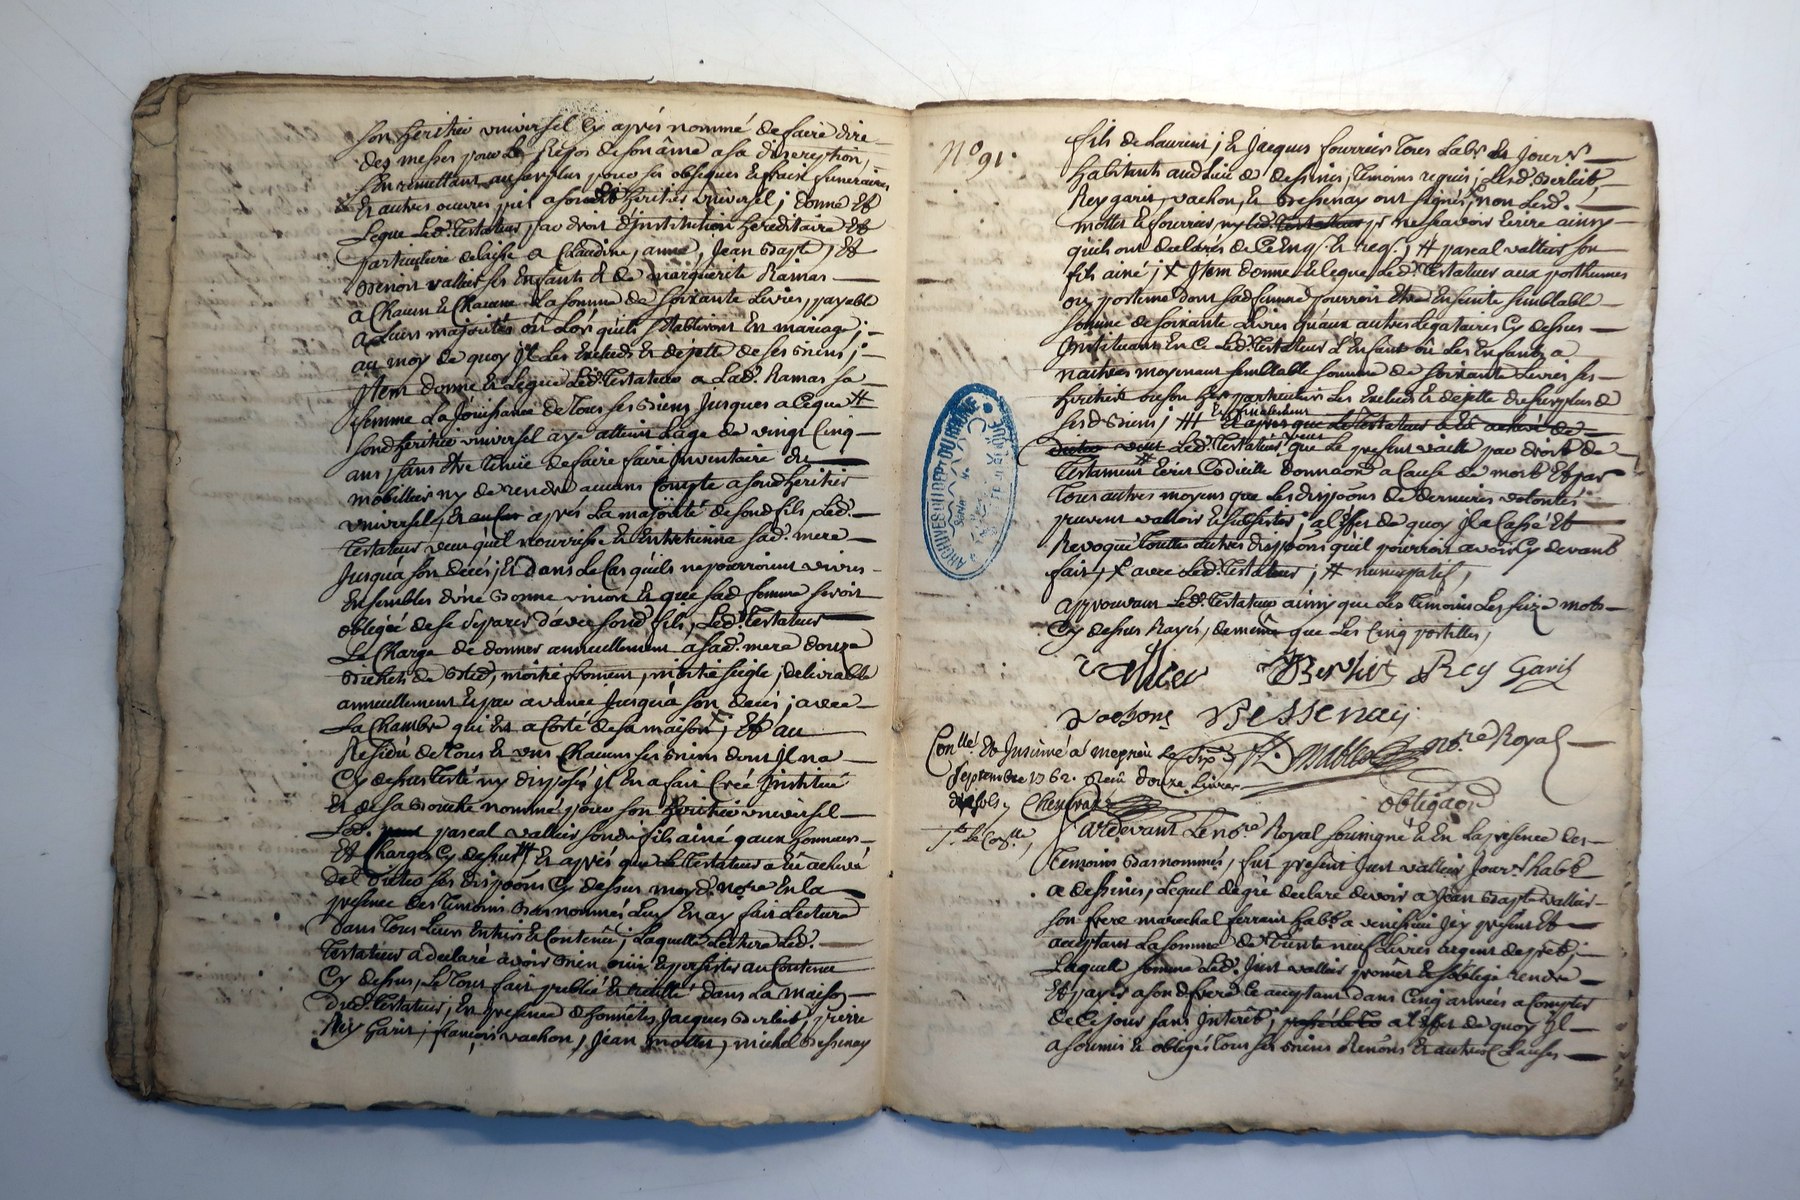 son heritier universel cy après nommé de faire dire
des messes pour le Repos de son âme a sa discretion,
s'en remettant au surplus pour ses obseques et fraix funeraires
et autres oeuvres pies a sondit heritier universel; donne et
legue led. testateur, par droit d'institution hereditaire et
particuliere delaisse a Claudine, anne, Jean Bapte, et
Benoit vallier ses Enfants et de marguerite Ramas
a Chacun et Chacune la somme de soixante Livres, payable
a leurs majorités ou lors qu'ils s'etabliront En mariage;
au moy de quoy Jl les Exclud et dejette de ses Biens;
Jtem donne et legue led. testateur a lad. Ramas sa
femme la Jouissance de tous ses Biens Jusques a ceque #
sond heritier universel aye atteint l'age de vingt cinq
ans, sans être tenüe de faire faire Jnventaire du
mobillier ny de rendre aucuns Compte a sond heritier
universel, et après la majorité de sond fils, led.
testateur veut qu'il nourrisse et entretienne sad. mere
Jusqu'a son deces; et dans le Cas qu'ils ne pourroient vivres
Ensembles d'une Bonne union et que sad femme seroit
obligée de se separer d'avec sond fils, led. testateur
le Charge de donner annuellement a sad. mere douze
Bichets de Bled, moitié froment, moitié seigle, delivrable
annuellement et par avance Jusqu'a son deces; avec
la Chambre qui est a Coté de sa maison; Et au
Residu de tous et uns Chacuns ses Biens dont Jl n'a
Cy dessus testé ny disposé Jl En a fait Créé Jnstitué
et de sa Bouche nommé pour son heritier universel
led. pascal vallier sondit fils ainé aux honneurs
et Charges Cy dessus # et après que le testateur a eu achevé
de dicter ses disposons Cy dessus moyd. nore En la
presence des temoins Bas nommés luy En ay fait Lecture
dans tous leurs Entiers et Contenüe; Laquelle Lecture led.
testateur a declaré avoir Bien ouie et persister au Contenu
Cy dessus, le tout fait publié et recitté dans la maison
dud. testateur, En presence d'honnêtes Jacques Berliet, pierre
Rey Garin, françois vachon, Jean mollet, michel Bessenay
N° 91.
fils de Laurent; et Jacques fourrier tous Labrs et Journrs
habitants audlieu de dessines, temoins requis; lesd. Berliet,
Rey garin, vachon, et Bessenay ont signés, non lesd.
mollet et fourrier, ny led. testateur pr ne sçavoir Ecrire ainsy
qu'ils ont declarés de Ce Enq. et req.; # pascal vallier son
fils ainé; X Jtem donne et legue led. testateur aux posthumes
ou postume dont sad femme pourroit être Enceinte semblable
somme de soixante Livres qu'aux autres legataires Cy dessus
Jnstituant En Ce led. testateur l'Enfant ou les Enfants a
naitres moyenant semblable somme de soixante Livres ses
heritiers ou son her. particulier les Exclud et dejette du surplus de
sesd Biens; # et après que le testateur a eu achevé de
dicter veut led. testateur que le present vaille par droit de
testament Ecrit Codicille donnaon a Cause de mort et par
tous autres moyens que les disposons de dernieres volontés
peuvent valloir et subsister; a l'effet de quoy Jl a Cassé et
Revoqué touttes autres disposons qu'il pourroit avoir Cy devant
fait, X avec led. testateur; # nuncupatif,
approuvant led. testateur ainsy que les temoins les seize mots
Cy dessus Rayés, de même que les Cinq postilles,
vallier Berliet Rey Garin
Vachons Bessenay
nore Royal
Conllé et Jnsinüé a meyzieu le dix
septembre 1762. Reçu douze Livres
dix sols,
obligaon
Pardevant le nore Royal soussigné et En la presence des
temoins Bas nommés, fut present Just vallier Journr habt
a dessines, lequel de gré declare devoir a Jean Bapte vallier
son frere marechal ferrant habt a venissieu Jcy present et
acceptant la somme de trente neuf Livres argent de prêt;
Laquelle somme led. Just vallier promet et s'oblige rendre
et payer a sond frere Ce acceptant dans Cinq années a Compter
de Ce jour sans Jnterêt; a l'effet de quoy Jl
a soumis et obligés tous ses Biens Renons et autres Clauses
ARCHIVES DU DEPT DU RHÔNE